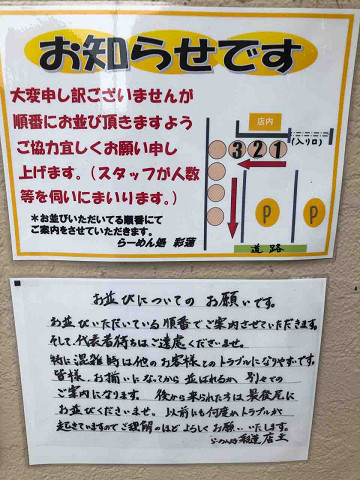 お知らせです
大変申し訳ございませんが
順番にお並び頂きますよう
ご協力宜しくお願い申し
上げます。(スタッフが人数
等を伺いにまいります。)
*お並びいただいてる順番にて
ご案内をさせていただきます。
らーめん処 彩蓮
店内
(入り口)
3 2 1
P P
道 路
お並びについてのお願いです。
お並びいただいている順番でご案内させていただきます。
そして代表者待ちはご遠慮くださいませ。
特に混雑時は他のお客様とのトラブルになりやすいです。
皆様、お揃いになってから並ばれるか、別々での
ご案内になります。後から来られた方は最後尾に
お並びくださいませ。以前にも何度かトラブルが
起きていますのでご理解のほどよろしくお願いいたします。
らーめん処 彩蓮 店主